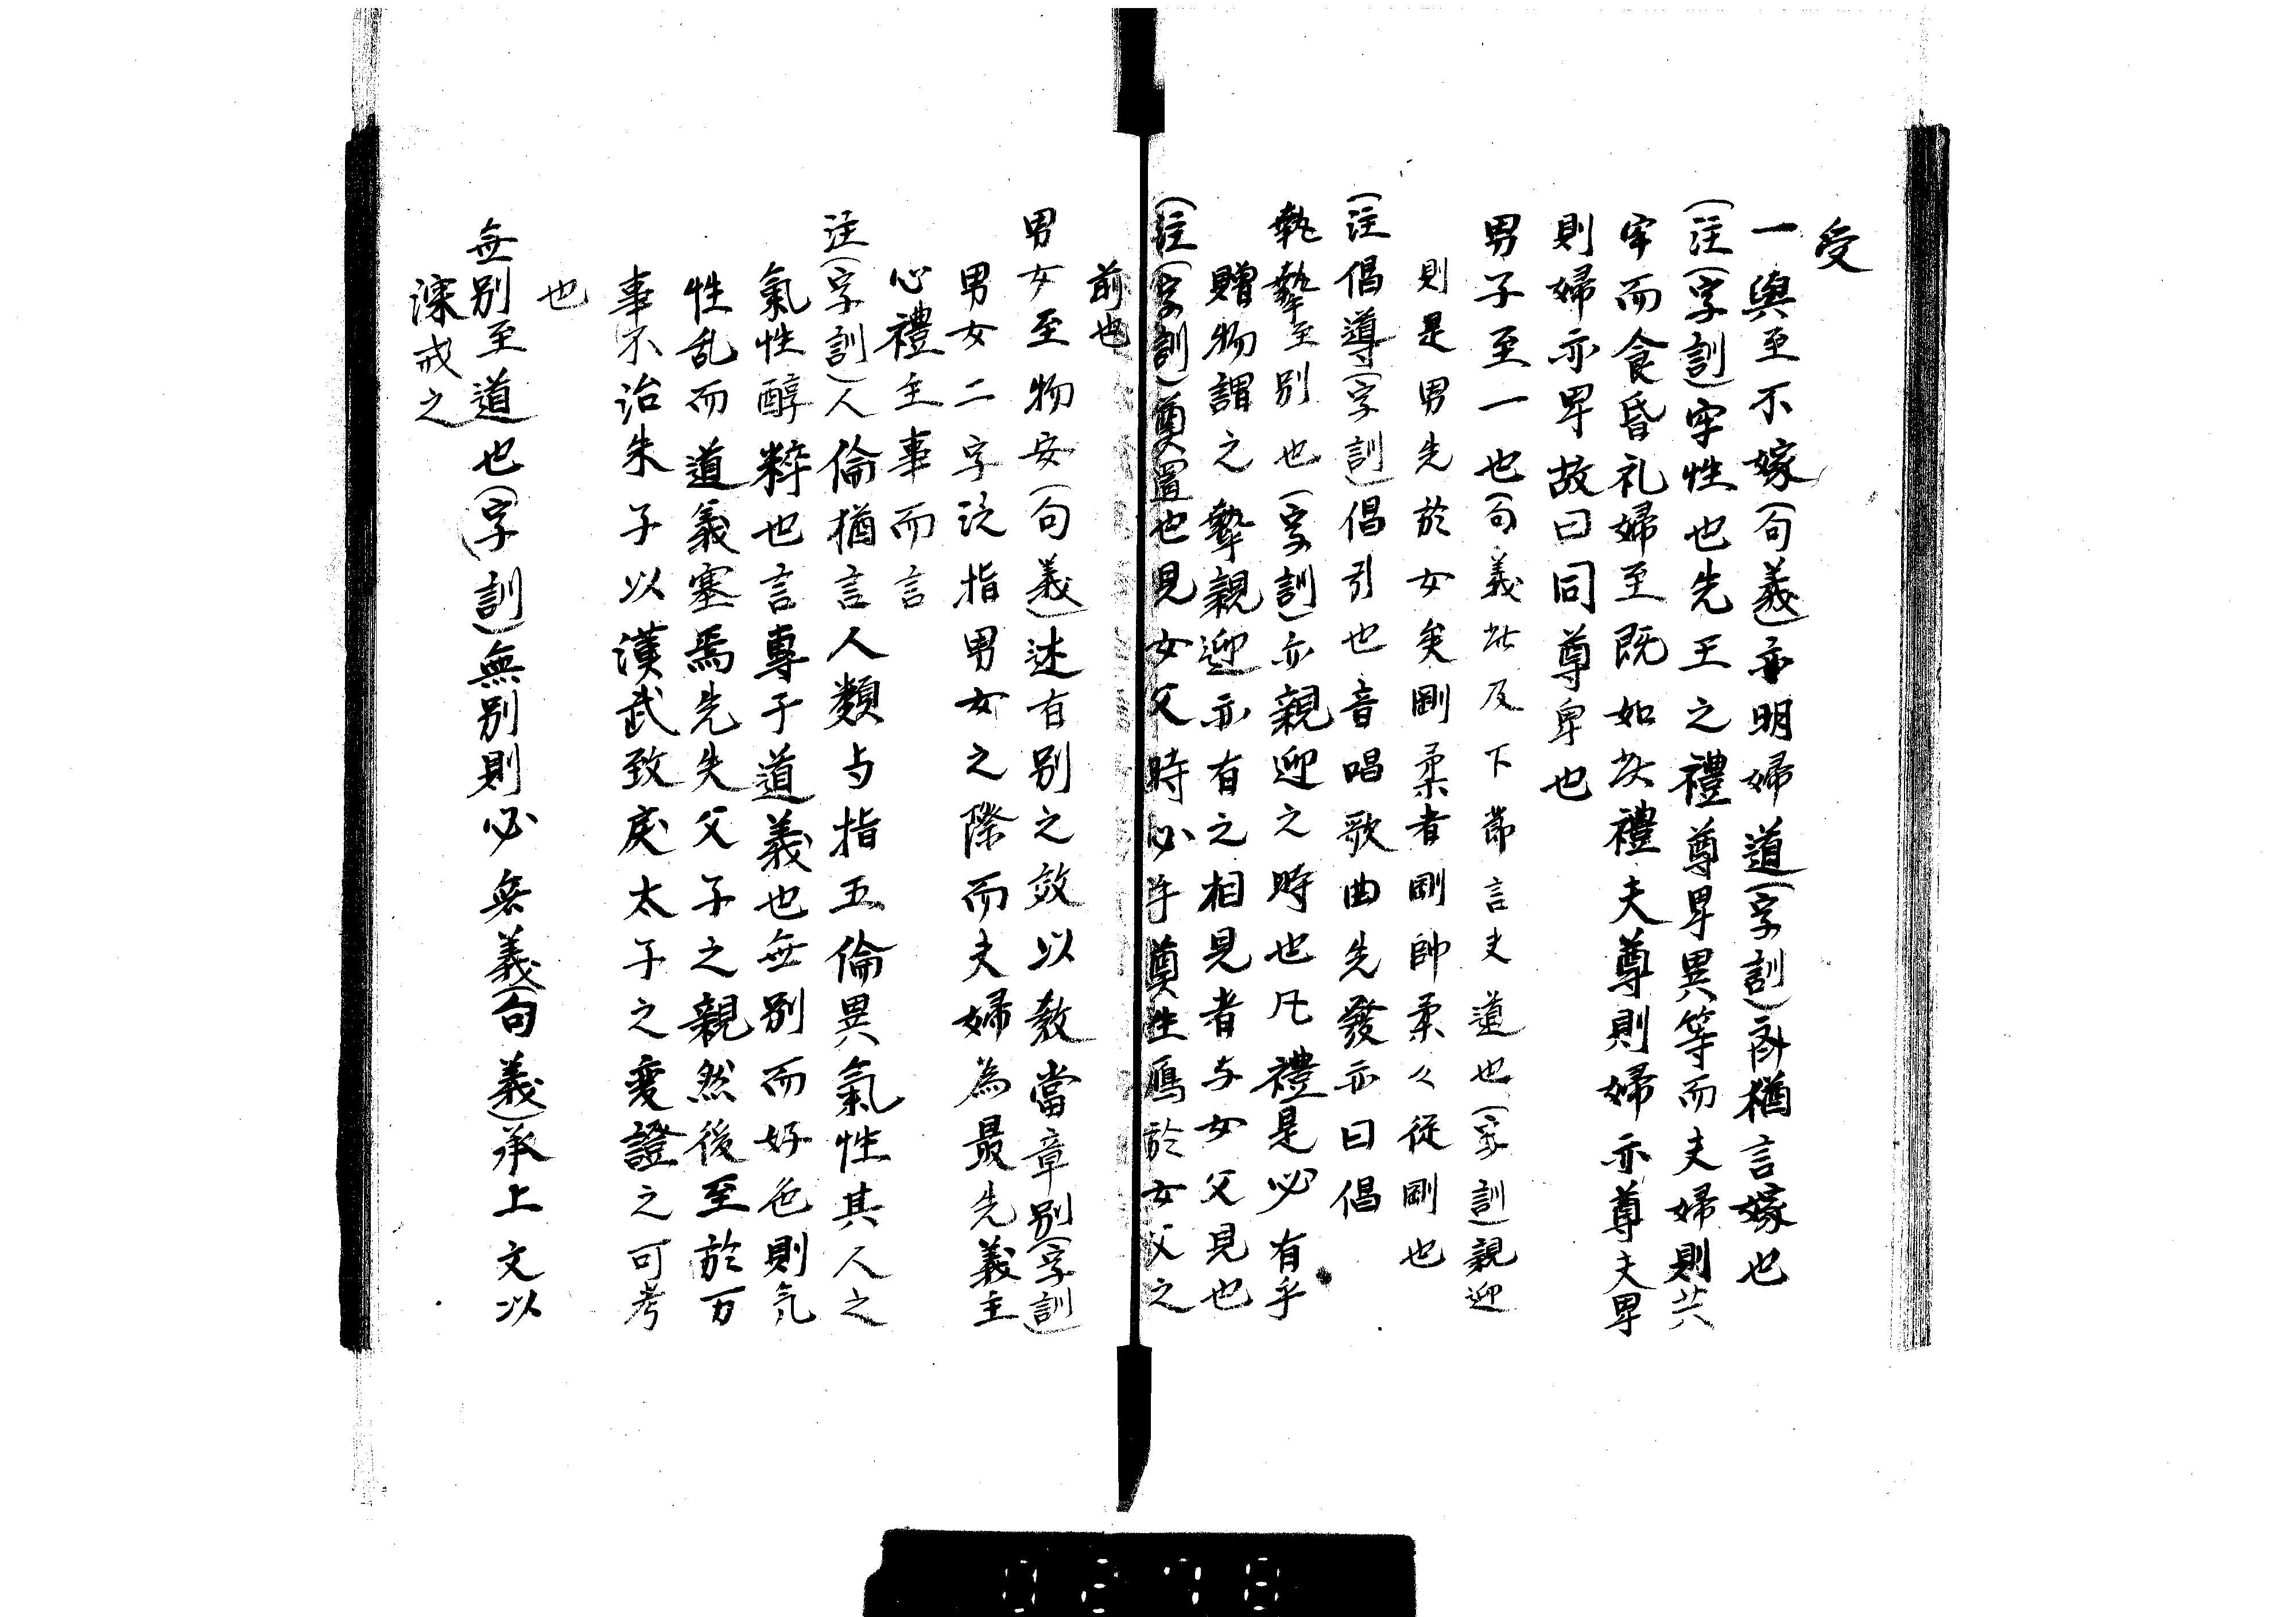 受
一與至不嫁(句義)亦明婦道(字訓)齊猶言嫁也
(注(字訓)牢牲也先王之禮尊卑異等而夫婦則共
牢而食昏礼婦至既如次禮夫尊則婦亦尊夫卑
則婦亦卑故曰同尊卑也
男子至一也(句義此及下節言夫道也(字訓)親迎
則是男先於女矣剛柔者剛帥柔々從剛也
(注倡導(字訓)倡引也音唱歌曲先發亦曰倡
執摯至別也(字訓)亦親迎之時也凡禮是必有乎
贈物謂之摯親迎亦有之相見者与女父見也
(注(字訓)奠置也見女父時必手奠生鴈於女父之
前也
男女至物安(句義)述有別之效以教當章別(字訓)
男女二字泛指男女之際而夫婦為最先義主
心禮主事而言
注(字訓)人倫猶言人類与指五倫異氣性其人之
氣性醇粹也言專于道義也無別而好色則気
性乱而道義塞焉先失父子之親然後至於万
事不治朱子以漢武致戾太子之变證之可考
也
無別至道也(字訓)無別則必無義(句義)承上文以
深戒之